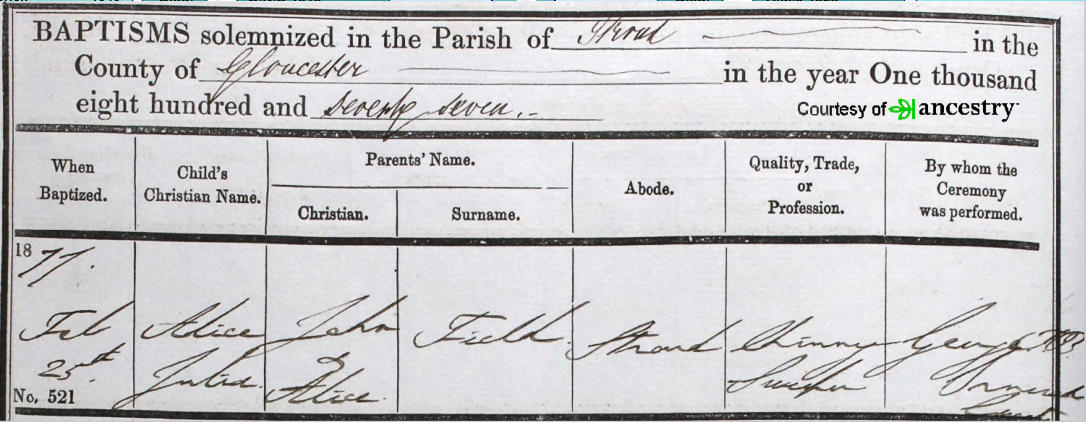 BAPTISMS solemnized in the Parish of Stroud in the
County of Gloucester in the year One thousand
eight hundred and seventy seven.
Courtesy of ancestry
When Baptized.
Child's Christian Name.
Parents' Name.
Christian.
Surname.
Abode.
Quality, Trade, or Profession.
By whom the Ceremony was performed.
1877.
Feb Alice John Field Stroud Chimney George
25th Julia & Sweeper Ormerod
No, 521 Alice